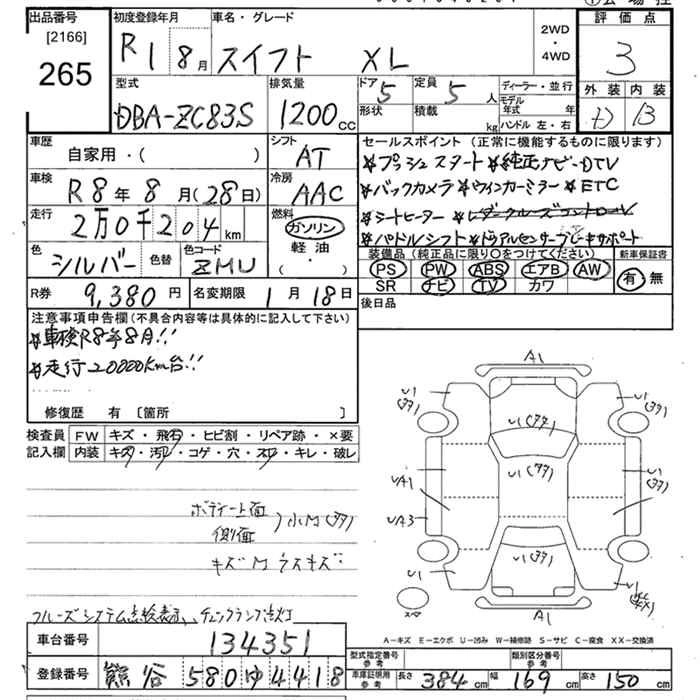 出品番号
[2166]
265
初度登録年月
R1 8月
車名・グレード
スイフト XL
2WD
・
4WD
評価点
3
外装 内装
B
型式
DBA-ZC83S
排気量
1200cc
ドア 5
形状
定員 5人
積載 kg
ディーラー・並行
モデル年式 年
ハンドル 左・右
車歴
自家用・( )
シフト
AT
車検
R8年8月(28日)
冷房
AAC
走行
2万0千204km
燃料
ガソリン
軽油
( ・ )
色
シルバー
色替
色コード
ZMU
R券 9,380円
名変期限 1月18日
セールスポイント(正常に機能するものに限ります)
*プッシュスタート*純正ナビーDTV
*バックカメラ*ウインカーミラー*ETC
*シートヒーター*レーダークルーズコントロール
*パドルシフト*デュアルセンサーブレーキサポート
装備品(純正品に限り○をつけてください)
PS PW ABS エアB AW
SR ナビ TV カワ
新車保証書
有 無
後日品
注意事項申告欄(不具合内容等は具体的に記入して下さい)
*車検R8年8月!!
*走行20000Km台!!
修復歴 有〔箇所 〕
検査員記入欄
FW キズ・飛石・ヒビ割・リペア跡・×要
内装 キズ・汚レ・コゲ・穴・スレ・キレ・破レ
ボデー上面
側面
)小M(タタ)
キズMウスキズ
クルーズシステム点検表示、チェックランプ点灯
A1
U1(タタ)
U1(タタ)
U1(タタ)
U1(タタ)
U1(タタ)
U1(タタ)
UA1
UA3
U1
A1
A−キズ E−エクボ U−凹み W−補修跡 S−サビ C−腐食 XX−交換済
車台番号 134351
登録番号 熊谷 580 ゆ 4418
型式指定番号 参考
類別区分番号 参考
車庫証明用 参考
長さ 384cm 幅 169cm 高さ 150cm